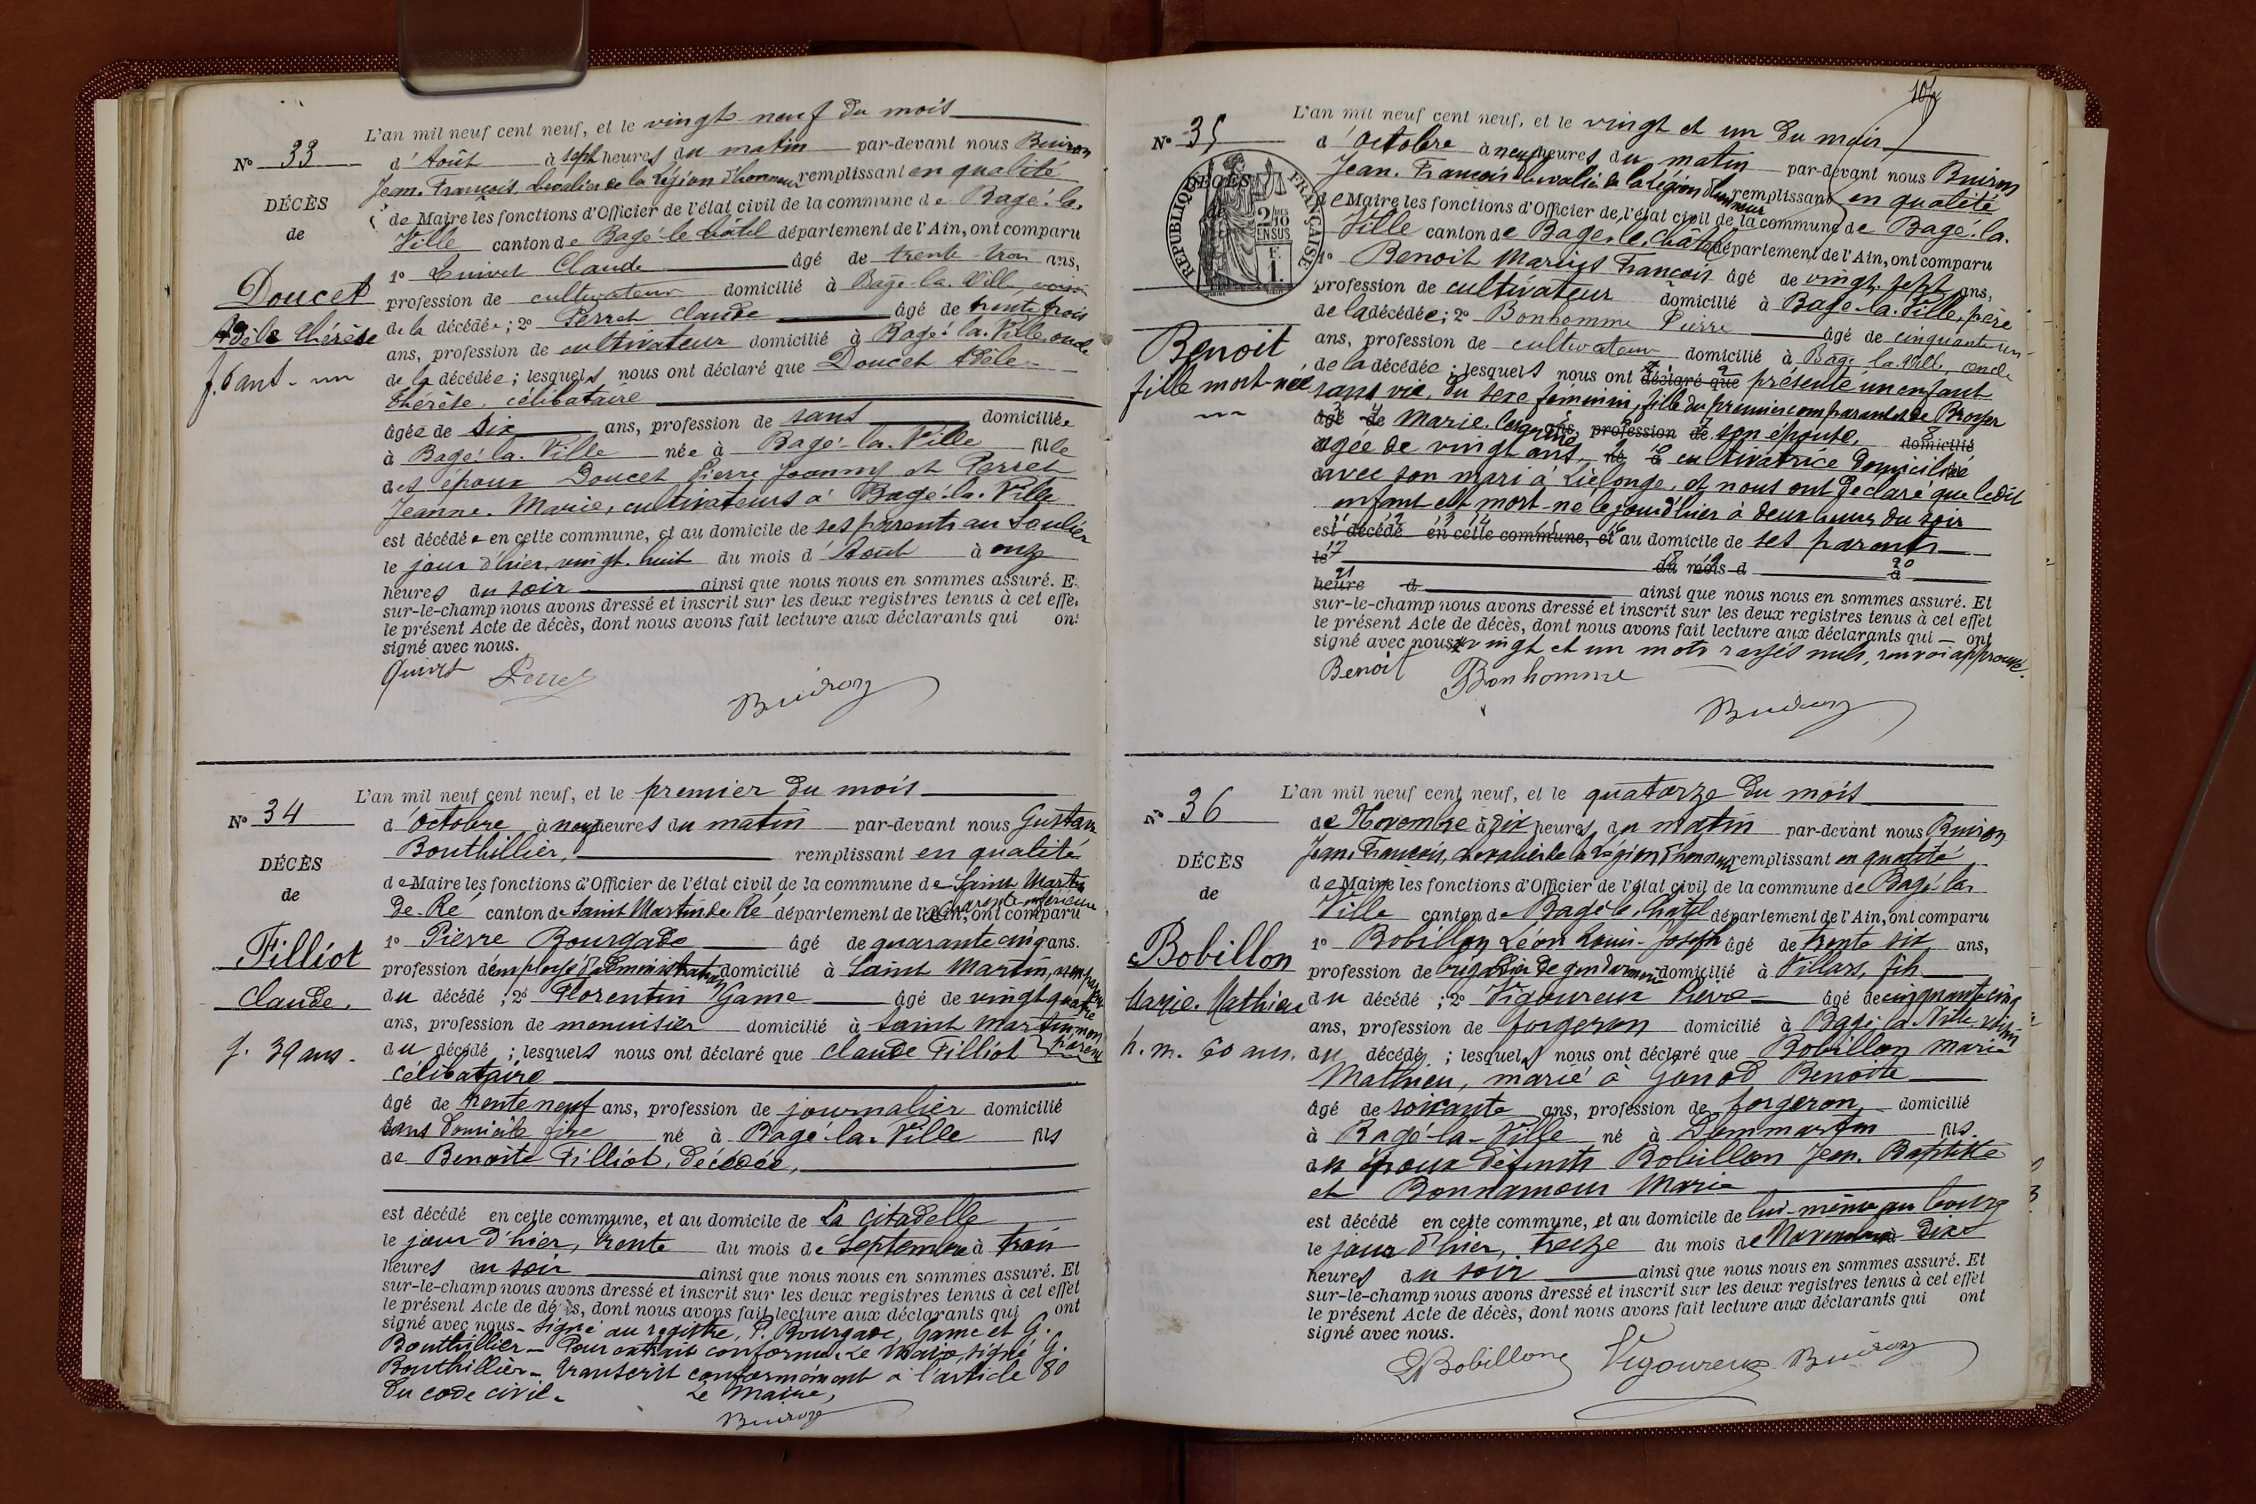 L'an mil neuf cent neuf, et le vingt-neuf du mois
N° 33
d'Août à sept heures du matin par-devant nous Buiron
Jean-François, chevalier de la Légion d'honneur remplissant en qualité
DÉCÈS
de Maire les fonctions d'Officier de l'état civil de la commune de Bagé-la-
de
Ville canton de Bagé-le-Châtel département de l'Ain, ont comparu
1° Quivet Claude âgé de trente-trois ans,
Doucet
profession de cultivateur domicilié à Bagé-la-Ville, voisin
de la décédée; 2° Perret Claude âgé de trente trois
Adèle Thérèse
ans, profession de cultivateur domicilié à Bagé-la-Ville, oncle
f. 6 ans
de la décédée; lesquels nous ont déclaré que Doucet Adèle-
Thérèse, célibataire
âgée de six ans, profession de sans domiciliée
à Bagé-la-Ville née à Bagé-la-Ville fille
des époux Doucet Pierre Joanny et Perret
Jeanne-Marie, cultivateurs à Bagé-la-Ville
est décédée en cette commune, et au domicile de ses parents au Soulier
le jour d'hier, vingt-huit du mois d'Août à onze
heures du soir ainsi que nous nous en sommes assuré. E
sur-le-champ nous avons dressé et inscrit sur les deux registres tenus à cet effe
le présent Acte de décès, dont nous avons fait lecture aux déclarants qui ont
signé avec nous.
Quivet Perret
Buiron
L'an mil neuf cent neuf, et le premier du mois
N° 34
d'octobre à neuf heures du matin par-devant nous Gustave
Bouthillier, remplissant en qualité
DÉCÈS
de Maire les fonctions d'Officier de l'état civil de la commune de Saint Martin
de
de Ré canton de Saint Martin de Ré département de l'Ain, Charente inférieure ont comparu
Filliot
1° Pierre Bourgade âgé de quarante cinq ans.
profession d'employé d'administration domicilié à Saint Martin, non parent
Claude.
du décédé; 2° Florentin Game âgé de vingt quatre
ans, profession de menuisier domicilié à Saint Martin non parent
g. 39 ans.
du décédé; lesquels nous ont déclaré que Claude Filliot
célibataire
âgé de trente neuf ans, profession de journalier domicilié
sans domicile fixe né à Bagé-la-Ville fils
de Benoite Filliot, décédée,
est décédé en cette commune, et au domicile de La citadelle
le jour d'hier, trente du mois de Septembre à trois
heures du soir ainsi que nous nous en sommes assuré. Et
sur-le-champ nous avons dressé et inscrit sur les deux registres tenus à cet effet
le présent Acte de décès, dont nous avons fait lecture aux déclarants qui ont
signé avec nous- Signé au registre, P. Bourgade, Game et G.
Bouthillier - Pour extrait conforme. Le Maire, signé G.
Bouthillier - Transcrit conformément à l'article 80
du code civil.
Le Maire,
Buiron
L'an mil neuf cent neuf, et le vingt et un du mois
N° 35
d'Octobre à neuf heures du matin par-devant nous Buiron
Jean-François chevalier de la Légion d'honneur remplissant en qualité
RÉPUBLIQUE FRANÇAISE
DÉCÈS
de
2/10 EN SUS
F. 1.
de Maire les fonctions d'Officier de l'état civil de la commune de Bagé-la-
Ville canton de Bagé-le-Châtel département de l'Ain, ont comparu
1° Benoit Marius François âgé de vingt-sept ans,
profession de cultivateur domicilié à Bagé-la-Ville, père
de la décédée; 2° Bonhomme Pierre âgé de cinquante un
Benoit
ans, profession de cultivateur domicilié à Bagé-la-Ville, oncle
fille mort-née
de la décédée; lesquels nous ont déclaré que présenté un enfant
sans vie, du sexe féminin, fille du premier comparant et de Broyer
âgé de Marie ans, profession de son épouse, domicilié
agée de vingt ans, né à cultivatrice domiciliée
avec son mari à Liélonge, et nous ont déclaré que le dit
enfant est mort-né le jour d'hier à deux heures du soir
est décédé en cette commune, et au domicile de ses parents
le du mois d à
heure d ainsi que nous nous en sommes assuré. Et
sur-le-champ nous avons dressé et inscrit sur les deux registres tenus à cet effet
le présent Acte de décès, dont nous avons fait lecture aux déclarants qui ont
signé avec nous. vingt et un mots rayés nuls, renvoi approuvé.
Benoit Bonhomme
Buiron
L'an mil neuf cent neuf, et le quatorze du mois
N° 36
de Novembre à dix heures du matin par-devant nous Buiron
Jean-François, chevalier de la Légion d'honneur remplissant en qualité
DÉCÈS
de Maire les fonctions d'Officier de l'état civil de la commune de Bagé-la-
de
Ville canton de Bagé-le-Châtel département de l'Ain, ont comparu
Bobillon
1° Bobillon Léon Louis-Joseph âgé de trente six ans,
profession de brigadier de gendarmerie domicilié à Villars, fils
Marie-Mathieu
du décédé; 2° Vigoureux Pierre âgé de cinquante cinq
ans, profession de forgeron domicilié à Bagé-la-Ville, voisin
h. m. 60 ans.
du décédé; lesquels nous ont déclaré que Bobillon Marie
Mathieu, marié à Gonod Benoite
âgé de soixante ans, profession de forgeron domicilié
à Bagé-la-Ville né à Dommartin fils
des époux défunts Bobillon Jean-Baptiste
et Bonnamour Marie
est décédé en cette commune, et au domicile de lui-même au bourg
le jour d'hier, treize du mois de Novembre à dix
heures du soir ainsi que nous nous en sommes assuré. Et
sur-le-champ nous avons dressé et inscrit sur les deux registres tenus à cet effet
le présent Acte de décès, dont nous avons fait lecture aux déclarants qui ont
signé avec nous.
Bobillon Vigoureux Buiron